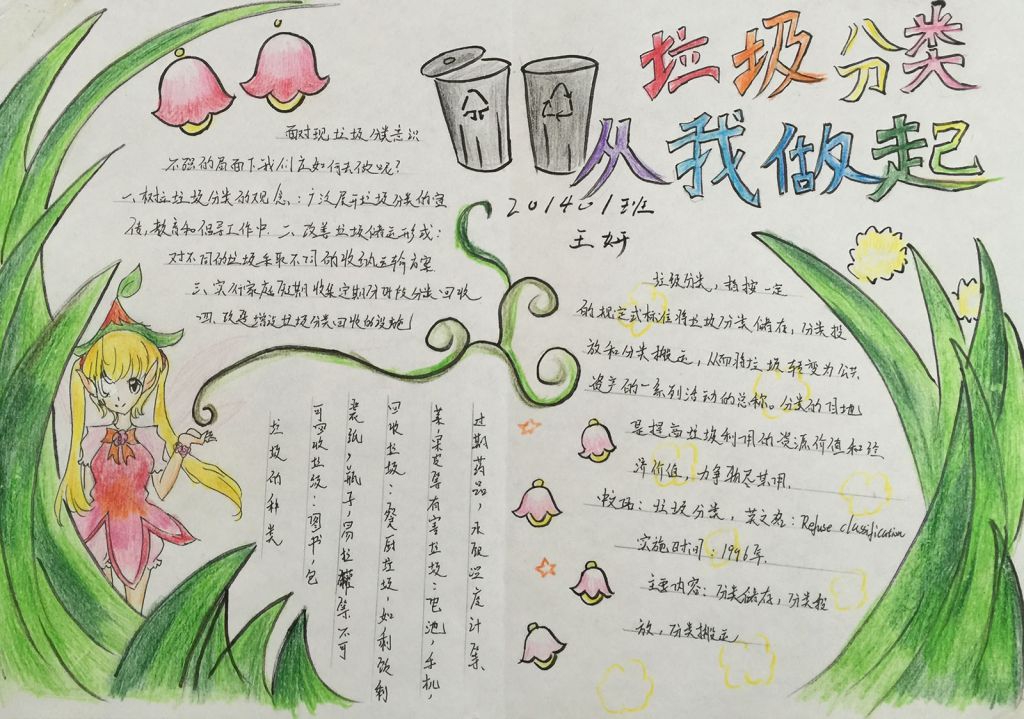 垃圾分类
从我做起
201401班
王妍
面对现垃圾分类意识
不强的局面下我们应如何去做呢?
一、树立垃圾分类的观念:广泛展开垃圾分类的宣
传,教育和倡导工作中.二、改善垃圾储运形式:
对不同的垃圾采取不同的收纳运输方案.
三、实行家庭定期收集定期分阶段分类回收
四、改建增设垃圾分类回收的设施
垃圾的种类
可回收垃圾:图书,包
装纸,瓶子,易拉罐等不可
回收垃圾:餐厨垃圾,如剩饭剩
菜,果皮等有害垃圾:电池,手机,
过期药品,水银温度计等.
垃圾分类,指按一定
的规定式标准将垃圾分类储存,分类投
放和分类搬运,从而将垃圾转变为公共
资产的一系列活动的总称。分类的目地
是提高垃圾利用的资源价值和经
济价值,力争物尽其用.
垃圾分类,英文名:Refuse classification
实施时间:1996年.
主要内容:分类储存,分类投
放,分类搬运